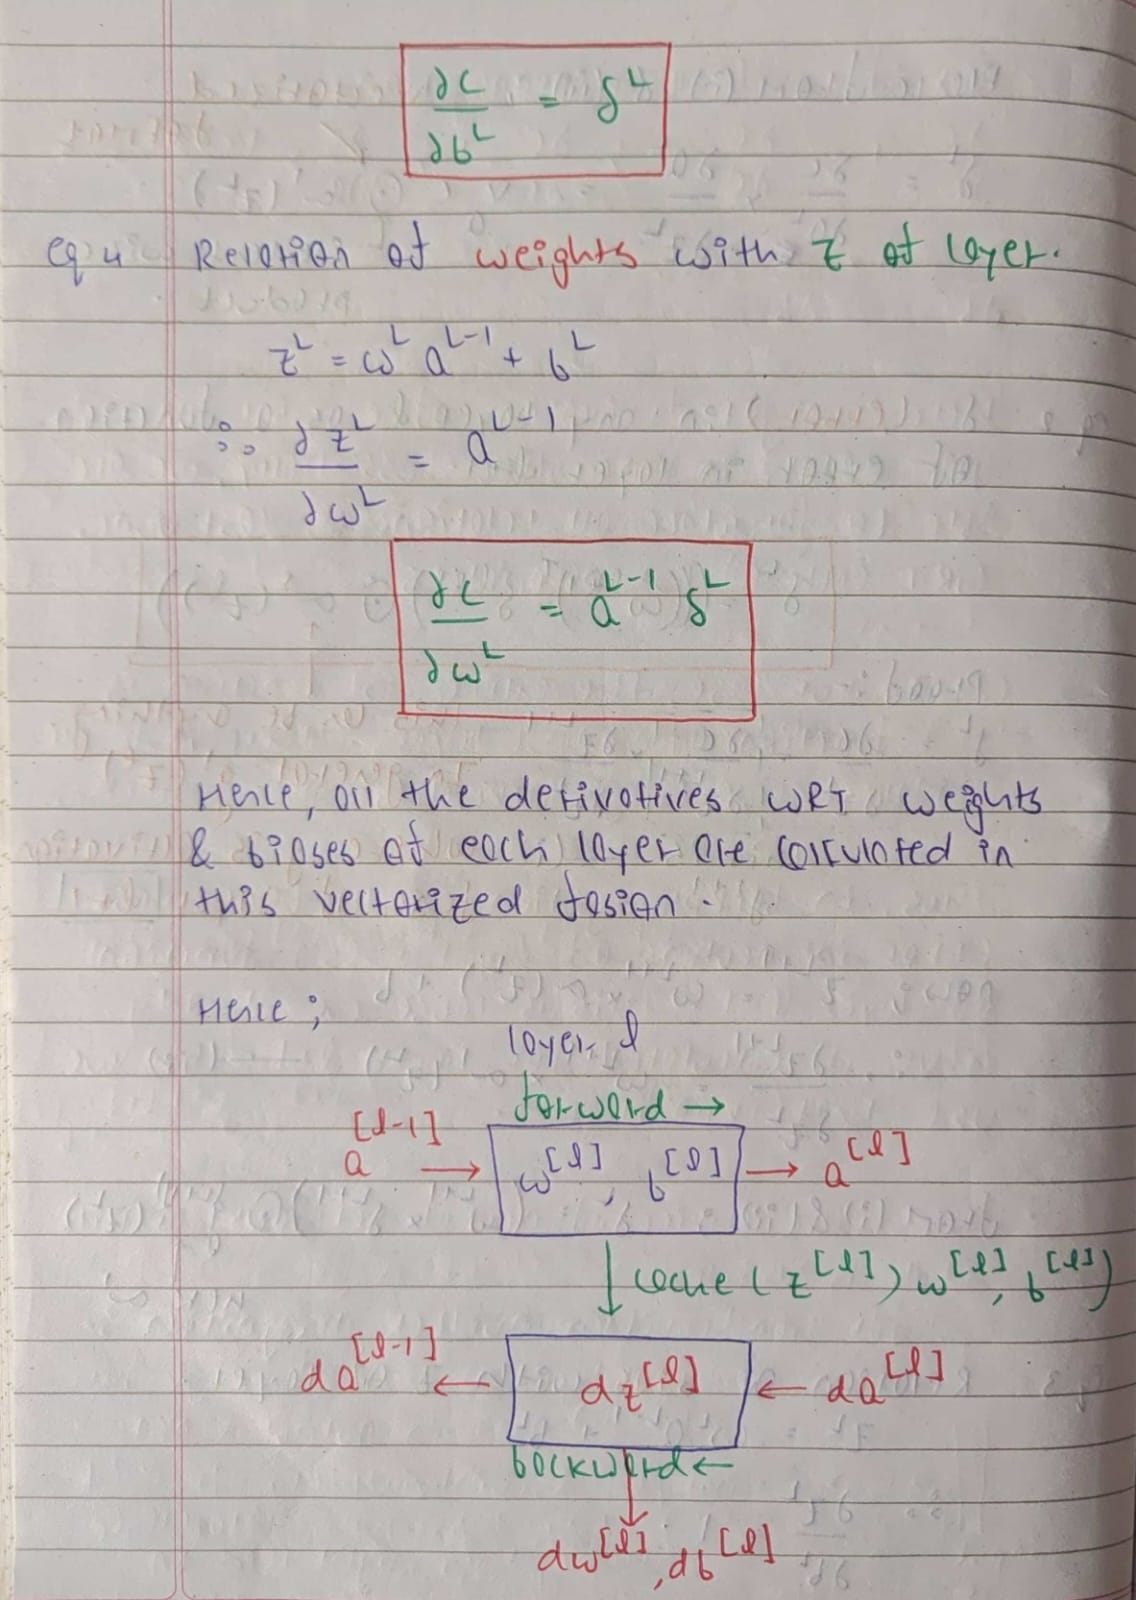 ∂C/∂b^L = δ^L
Eq 4 Relation of weights with z of layer.
z^L = w^L a^(L-1) + b^L
∴ ∂z^L/∂w^L = a^(L-1)
∂C/∂w^L = a^(L-1) δ^L
Hence, all the derivatives WRT weights
& biases of each layer are calculated in
this vectorized fasion.
Hence;
layer l
forward →
a^[l-1] → w^[l], b^[l] → a^[l]
↓ cache (z^[l]) w^[l], b^[l])
da^[l-1] ← dz^[l] ← da^[l]
backward ←
dw^[l], db^[l]